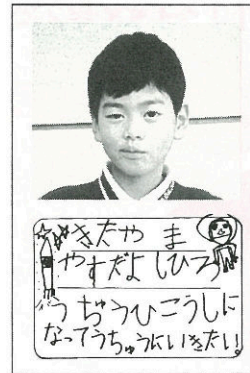 きたやま
やすだよしひろ
うぢうひこうしに
なってうちゅうにいきたい!